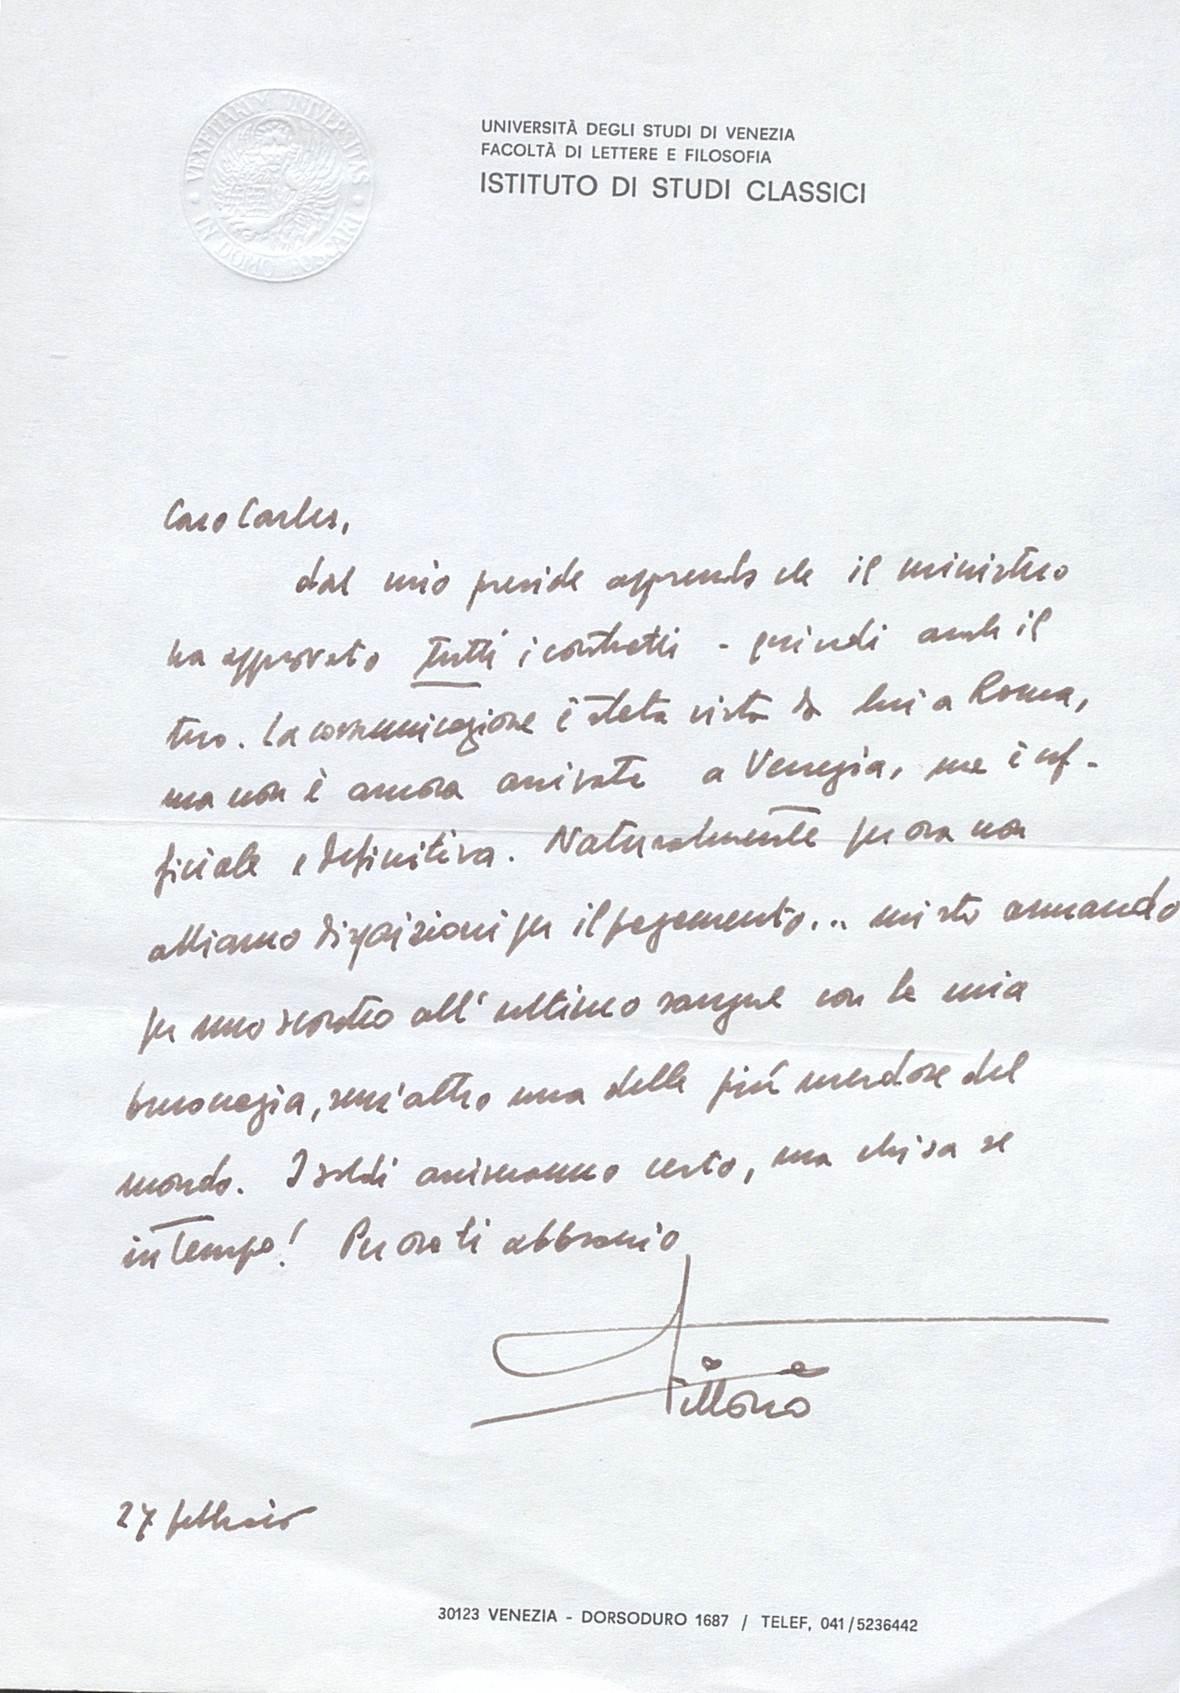 VENETIARUM UNIVERSITAS
IN DOMO FOSCARI
UNIVERSITÀ DEGLI STUDI DI VENEZIA
FACOLTÀ DI LETTERE E FILOSOFIA
ISTITUTO DI STUDI CLASSICI
Caro Carles,
dal mio preside apprendo che il ministro
ha approvato tutti i contratti - quindi anche il
tuo. La comunicazione è stata vista da lui a Roma,
ma non è ancora arrivata a Venezia, ma è uf-
ficiale e definitiva. Naturalmente per ora non
abbiamo disposizioni per il pagamento... mi sto armando
per uno scontro all'ultimo sangue con la mia
burocrazia, senz'altro una delle più merdose del
mondo. I soldi arriveranno certo, ma chissà se
in tempo! Per ora ti abbraccio
Vittorio
27 febbraio
30123 VENEZIA - DORSODURO 1687 / TELEF. 041/5236442